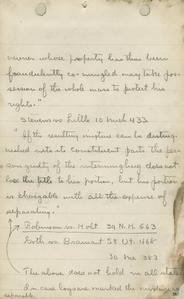 owner whose property has thus been
fraudulently co-mingled may take pos-
session of the whole mass to protect his
rights."
Stevens vs Little 10 Cush 433
"If the resulting mixture can be disting-
uished into its constituent parts the per-
son guilty of the intermingling does not
lose the title to his portion, but his portion
is chargeable with all the expense of
separating."
Robinson vs Holt 39 N.H. 563
vs 51 Vt. 468
30 Me 383
The above does not hold in all states
In case logs are marked the mixture is